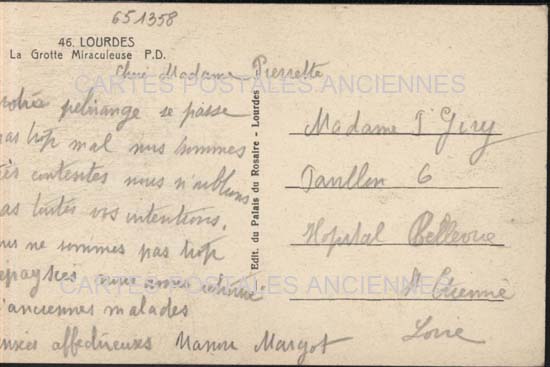 651358
46. LOURDES
La Grotte Miraculeuse P.D.
CARTES POSTALES ANCIENNES
Madame Pierrette
notre pelrinange se passe
pas trop mal nous sommes
très contentes nous n'oublions
pas toutes vos intentions.
nous ne sommes pas trop
depaysées nous avons
d'anciennes malades
affectueuses Margot
Edit. du Palais du Rosaire - Lourdes
Madame
6
Hopital Bellevue
St Etienne
Loire
CARTES POSTALES ANCIENNES